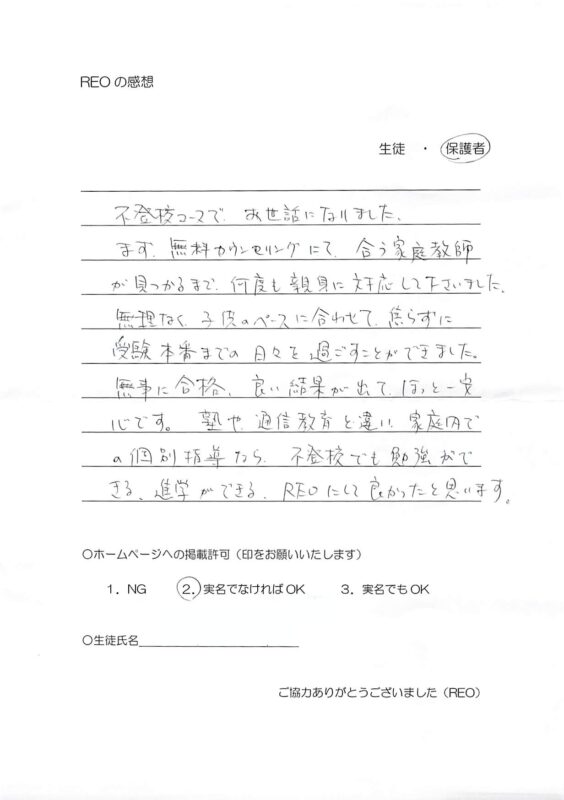 REOの感想
生徒 ・ 保護者
不登校コースで、お世話になりました。
まず、無料カウンセリングにて、合う家庭教師
が見つかるまで、何度も親身に対応して下さいました。
無理なく、子供のペースに合わせて、焦らずに
受験本番までの日々を過ごすことができました。
無事に合格、良い結果が出て、ほっと一安
心です。 塾や、通信教育と違い、家庭内で
の個別指導なら、不登校でも勉強がで
きる、進学ができる、REOにして良かったと思います。
○ホームページへの掲載許可（印をお願いいたします）
1．NG 2．実名でなければOK 3．実名でもOK
○生徒氏名
ご協力ありがとうございました（REO）